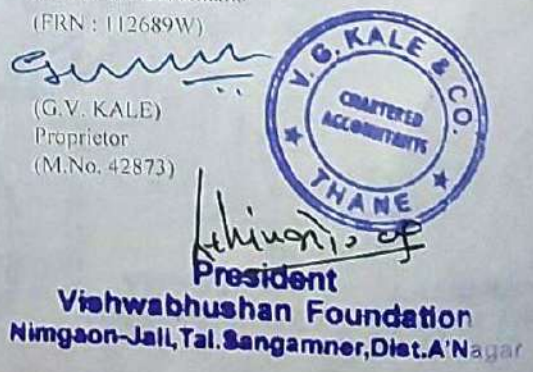 (FRN : 112689W)
(G.V. KALE)
Proprietor
(M.No. 42873)
V. G. KALE & CO.
CHARTERED
ACCOUNTANTS
THANE
President
Vishwabhushan Foundation
Nimgaon-Jali,Tal.Sangamner,Dist.A'Nagar